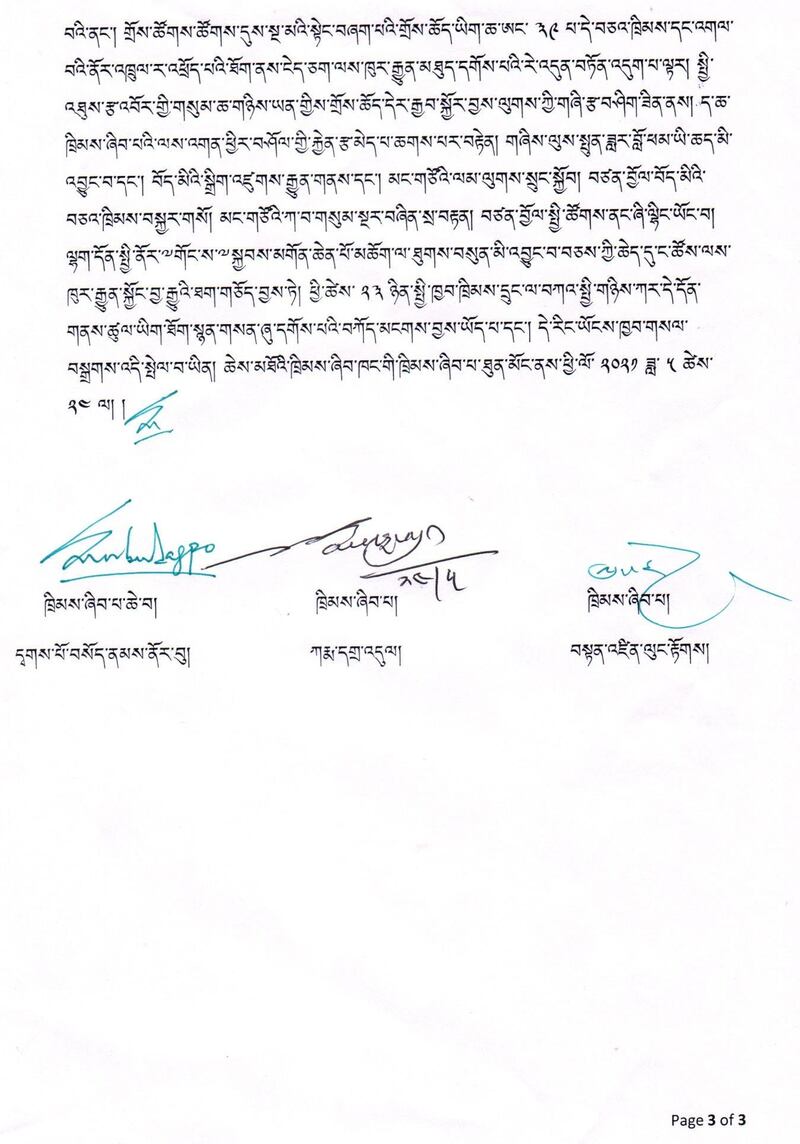 བའི་ནང་། གྲོས་ཚོགས་ཚོགས་དུས་སྔ་མའི་སྟེང་བཞག་པའི་གྲོས་ཆོད་ཡིག་ཆ་ཨང་ ༣༩ པ་དེ་བཅའ་ཁྲིམས་དང་འགལ་
བའི་ནོར་འཁྲུལ་ར་འཕྲོད་པའི་ཐོག་ནས་ངེད་ཅག་ལས་ཁུར་རྒྱུན་མཐུད་དགོས་པའི་རེ་འདུན་བཏོན་འདུག་པ་ལྟར། སྤྱི་
འཐུས་རྩ་འབོར་གྱི་གསུམ་ཆ་གཉིས་ཡན་གྱིས་གྲོས་ཆོད་དེར་རྒྱབ་སྐྱོར་བྱས་ལུགས་ཀྱི་གཞི་རྩ་བཤིག་ཟིན་ནས། ད་ཆ་
ཁྲིམས་ཞིབ་པའི་ལས་འགན་ཕྱིར་བཤོལ་གྱི་རྐྱེན་རྩ་མེད་པ་ཆགས་པར་བརྟེན། གཞིས་ལུས་སྤུན་ཟླར་བློ་ཕམ་ཡི་ཆད་མི་
འབྱུང་བ་དང་། བོད་མིའི་སྒྲིག་འཛུགས་རྒྱུན་གནས་དང་། མང་གཙོའི་ལམ་ལུགས་སྲུང་སྐྱོབ། བཙན་བྱོལ་བོད་མིའི་
བཅའ་ཁྲིམས་བསྐྱར་གསོ། མང་གཙོའི་ཀ་བ་གསུམ་སྔར་བཞིན་སྲ་བརྟན། བཙན་བྱོལ་སྤྱི་ཚོགས་ནང་ཞི་ལྷིང་ཡོང་བ།
ལྷག་དོན་སྤྱི་ནོར་༧གོང་ས་༧སྐྱབས་མགོན་ཆེན་པོ་མཆོག་ལ་ཐུགས་བསུན་མི་འབྱུང་བ་བཅས་ཀྱི་ཆེད་དུ་ང་ཚོས་ལས་
ཁུར་རྒྱུན་སྐྱོང་བྱ་རྒྱུའི་ཐག་གཅོད་བྱས་ཏེ། ཕྱི་ཚེས་ ༢༣ ཉིན་སྤྱི་ཁྱབ་ཁྲིམས་དྲུང་ལ་བཀའ་སྤྱི་གཉིས་ཀར་དེ་དོན་
གནས་ཚུལ་ཡིག་ཐོག་སྙན་གསན་ཞུ་དགོས་པའི་བཀོད་མངགས་བྱས་ཡོད་པ་དང་། དེ་རིང་ཡོངས་ཁྱབ་གསལ་
བསྒྲགས་འདི་སྤེལ་བ་ཡིན། ཆེས་མཐོའི་ཁྲིམས་ཞིབ་ཁང་གི་ཁྲིམས་ཞིབ་པ་ཐུན་མོང་ནས་ཕྱི་ལོ་ ༢༠༢༡ ཟླ་ ༥ ཚེས་
༢༤ ལ། །
༢༤/༥
ཁྲིམས་ཞིབ་པ་ཆེ་བ། ཁྲིམས་ཞིབ་པ། ཁྲིམས་ཞིབ་པ།
དྭགས་པོ་བསོད་ནམས་ནོར་བུ། ཀརྨ་དགྲ་འདུལ། བསྟན་འཛིན་ལུང་རྟོགས།
Page 3 of 3